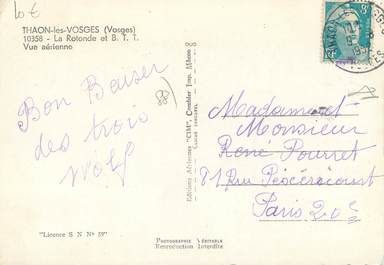 10€
THAON-les-VOSGES (Vosges)
10358 - La Rotonde et B. T. T.
Vue aérienne
Bon Baiser
des trois
Wolf
88
"Licence S N N° 59"
Editions Aériennes "CIM", Combier Imp. Mâcon
Photographie Véritable
Reproduction Interdite
Madame et
Monsieur
René Pourret
81 Rue
Paris 20e